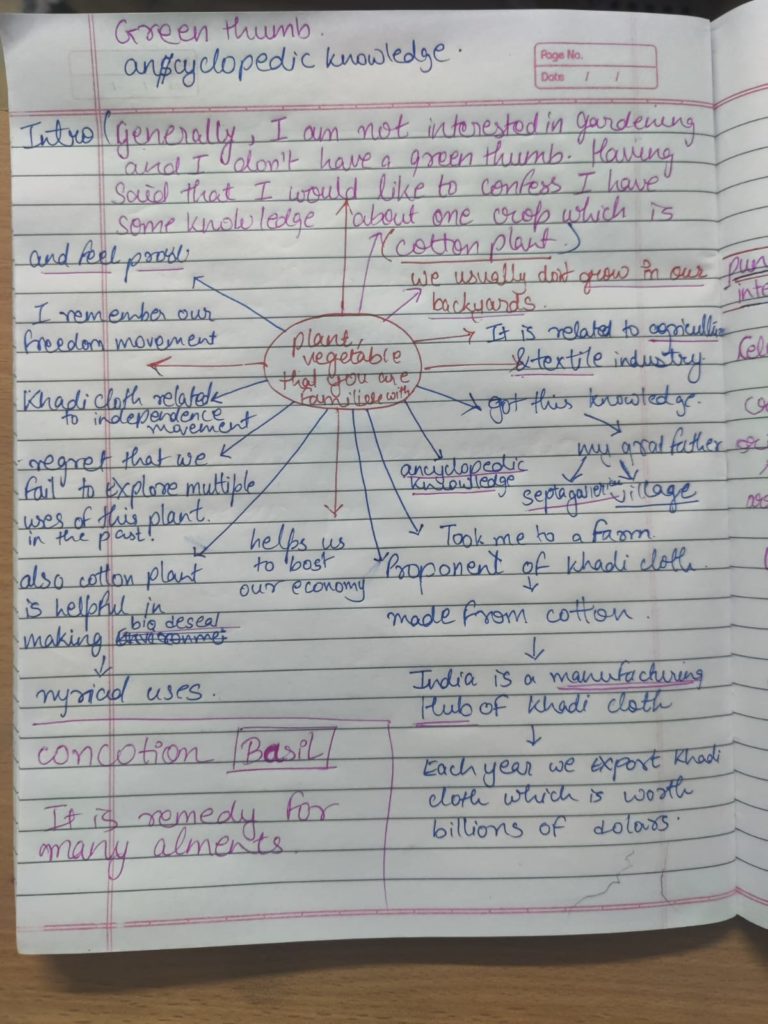 Green thumb.
anscyclopedic knowledge.
Page No.
Date / /
Intro (Generally, I am not interested in gardening
and I don't have a green thumb. Having
Said that I would like to confess I have
some knowledge about one crop which is
(cotton plant.)
and feel proud.
we usually don't grow in our
backyards.
I remember our
freedom movement
plant,
vegetable
that you are
familiar with
It is related to agriculture
& textile industry
Khadi cloth related
to independence
movement
got this knowledge.
my grat father
septagenerian village
regret that we
fail to explore multiple
uses of this plant.
in the past!
ancyclopedic
knowledge
Took me to a farm.
helps us
to bost
our economy
Proponent of khadi cloth.
also cotton plant
is helpful in
making bio deseal
made from cotton.
myriad uses.
India is a manufacturing
Hub of khadi cloth
Each year we export khadi
cloth which is worth
billions of dolars.
concotion Basil
It is remedy for
many alments.